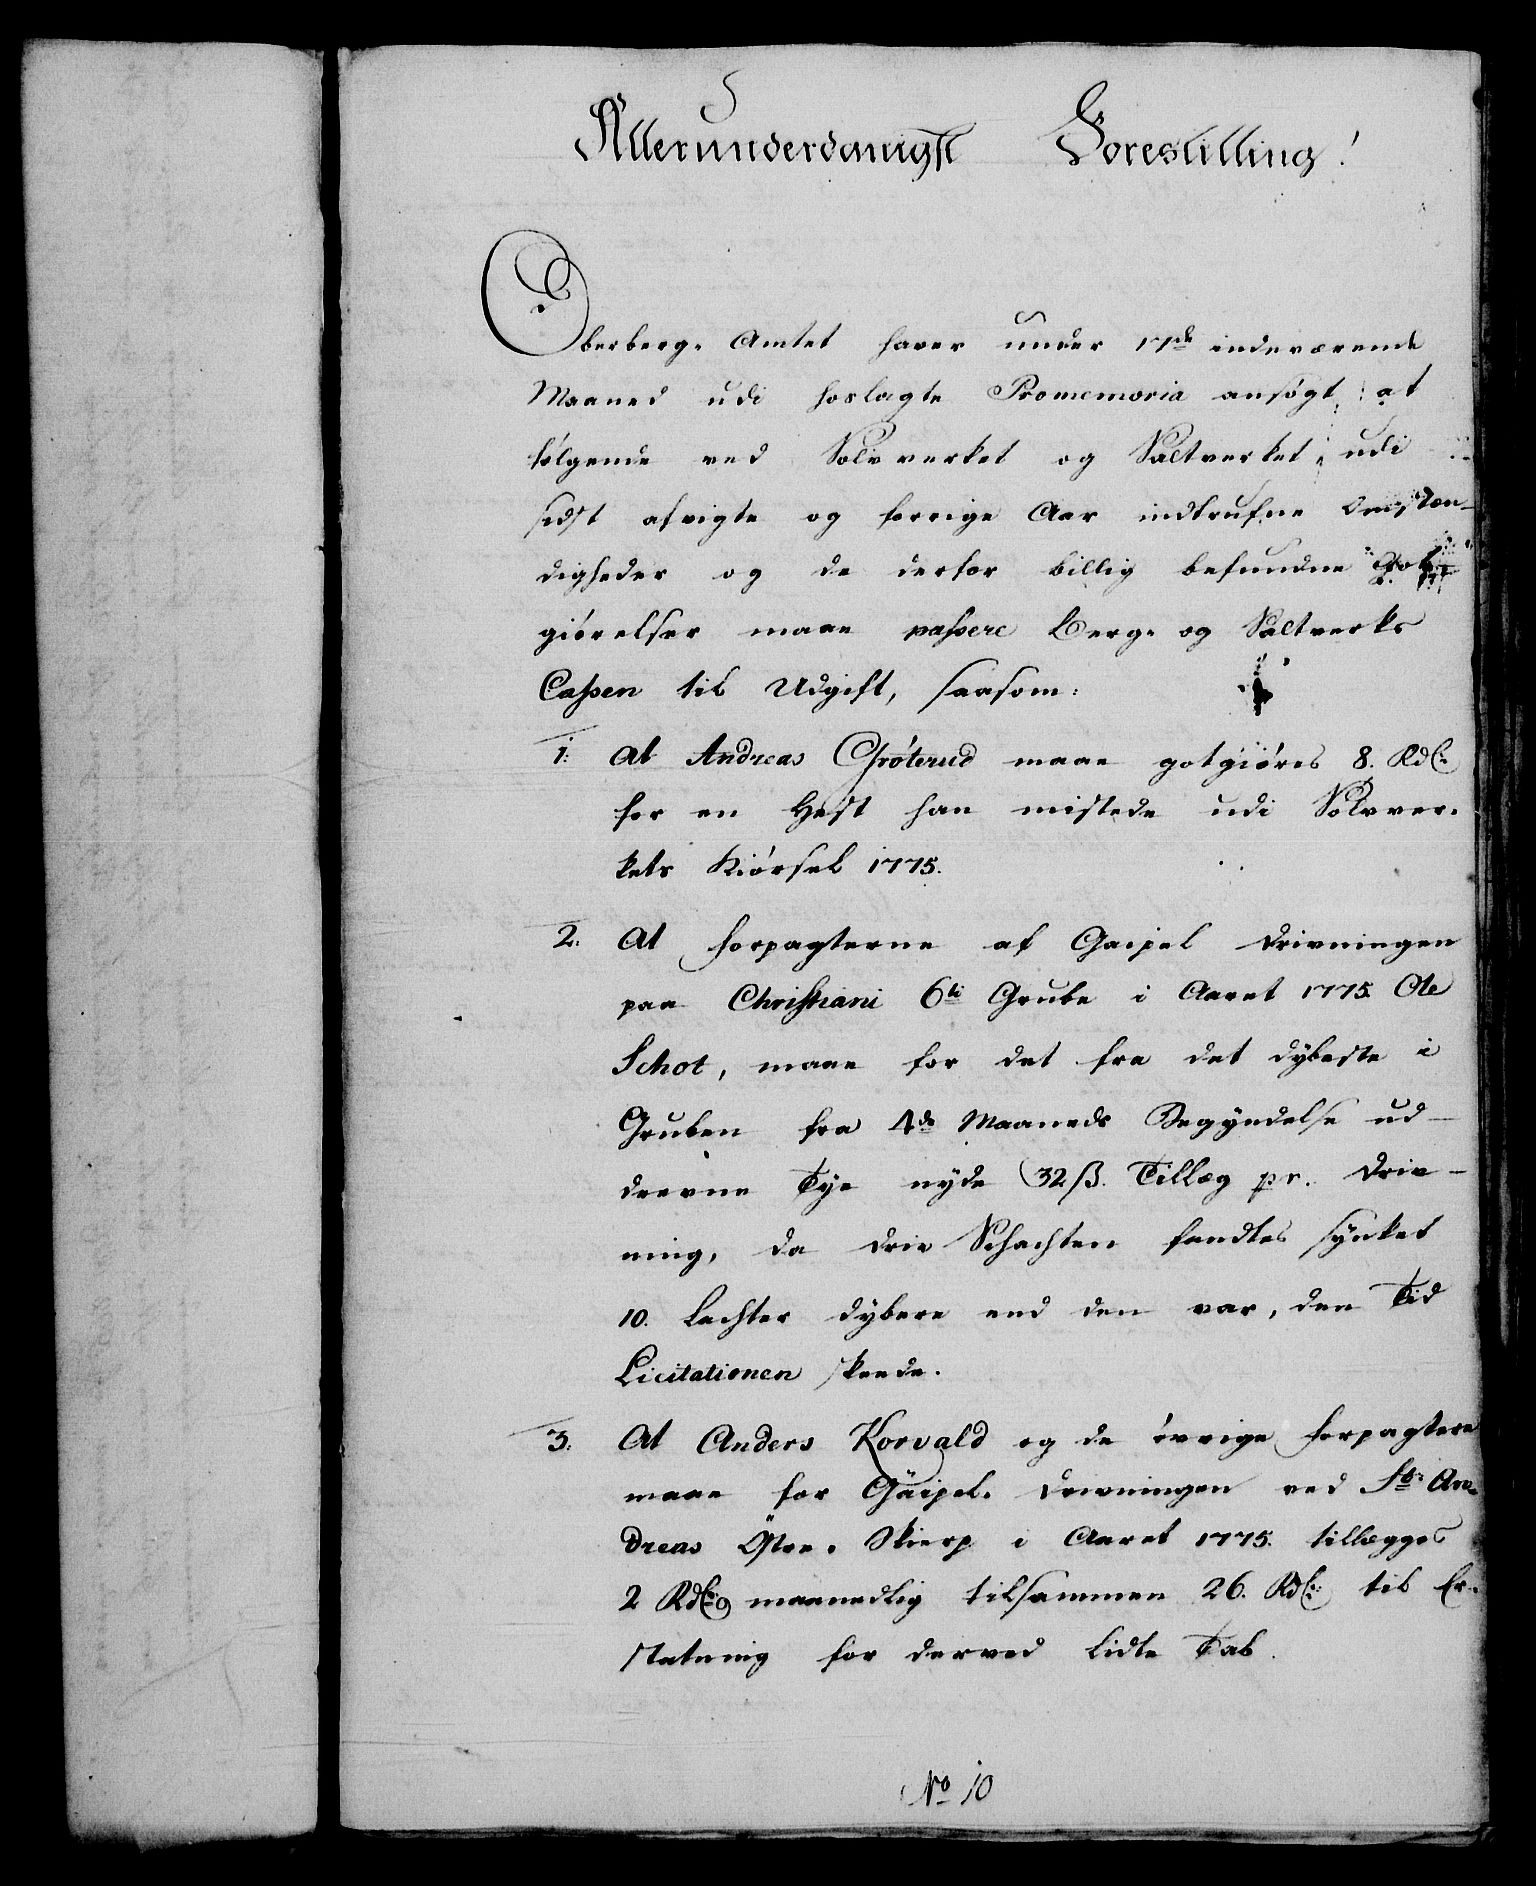 Allerunderdanigst Forestilling!
Oberberg-Amtet haver under 17de indeværende
Maaned udi hoslagte Promemoria ansøgt, at
følgende ved Sølvverket og Saltverket, udi
sidst afvigte og forrige Aar indtrufne Omstæn-
digheder og de derfor billig befundne Got-
giørelser maae passere Berg- og Saltverks
Cassen til Udgift, saasom:
1: At Andreas Grøterud maae gotgiøres 8. Rdl:
for en Hest han mistede udi Sølvver-
kets Kiørsel 1775.
2: At Forpagterne af Gaipel Drivningen
paa Christiani 6ti Grube i Aaret 1775. Ole
Schot, maae for det fra det dybeste i
Gruben fra 4de Maaneds Begyndelse ud-
drevne Tye nyde 32 ß. Tillæg pr. Driv-
ning, da Driv Schachten fandtes synket
10. Lachter dybere end den var, den Tid
Licitationen skeede.
3: At Anders Korvald og de øvrige Forpagtere
maae for Gäipel-Drivningen ved St: An-
dreas Østre-Skierp i Aaret 1775. tillægges
2 Rdl: maanedlig tilsammen 26. Rdl: til Er-
statning for derved lidte Tab.
No 10